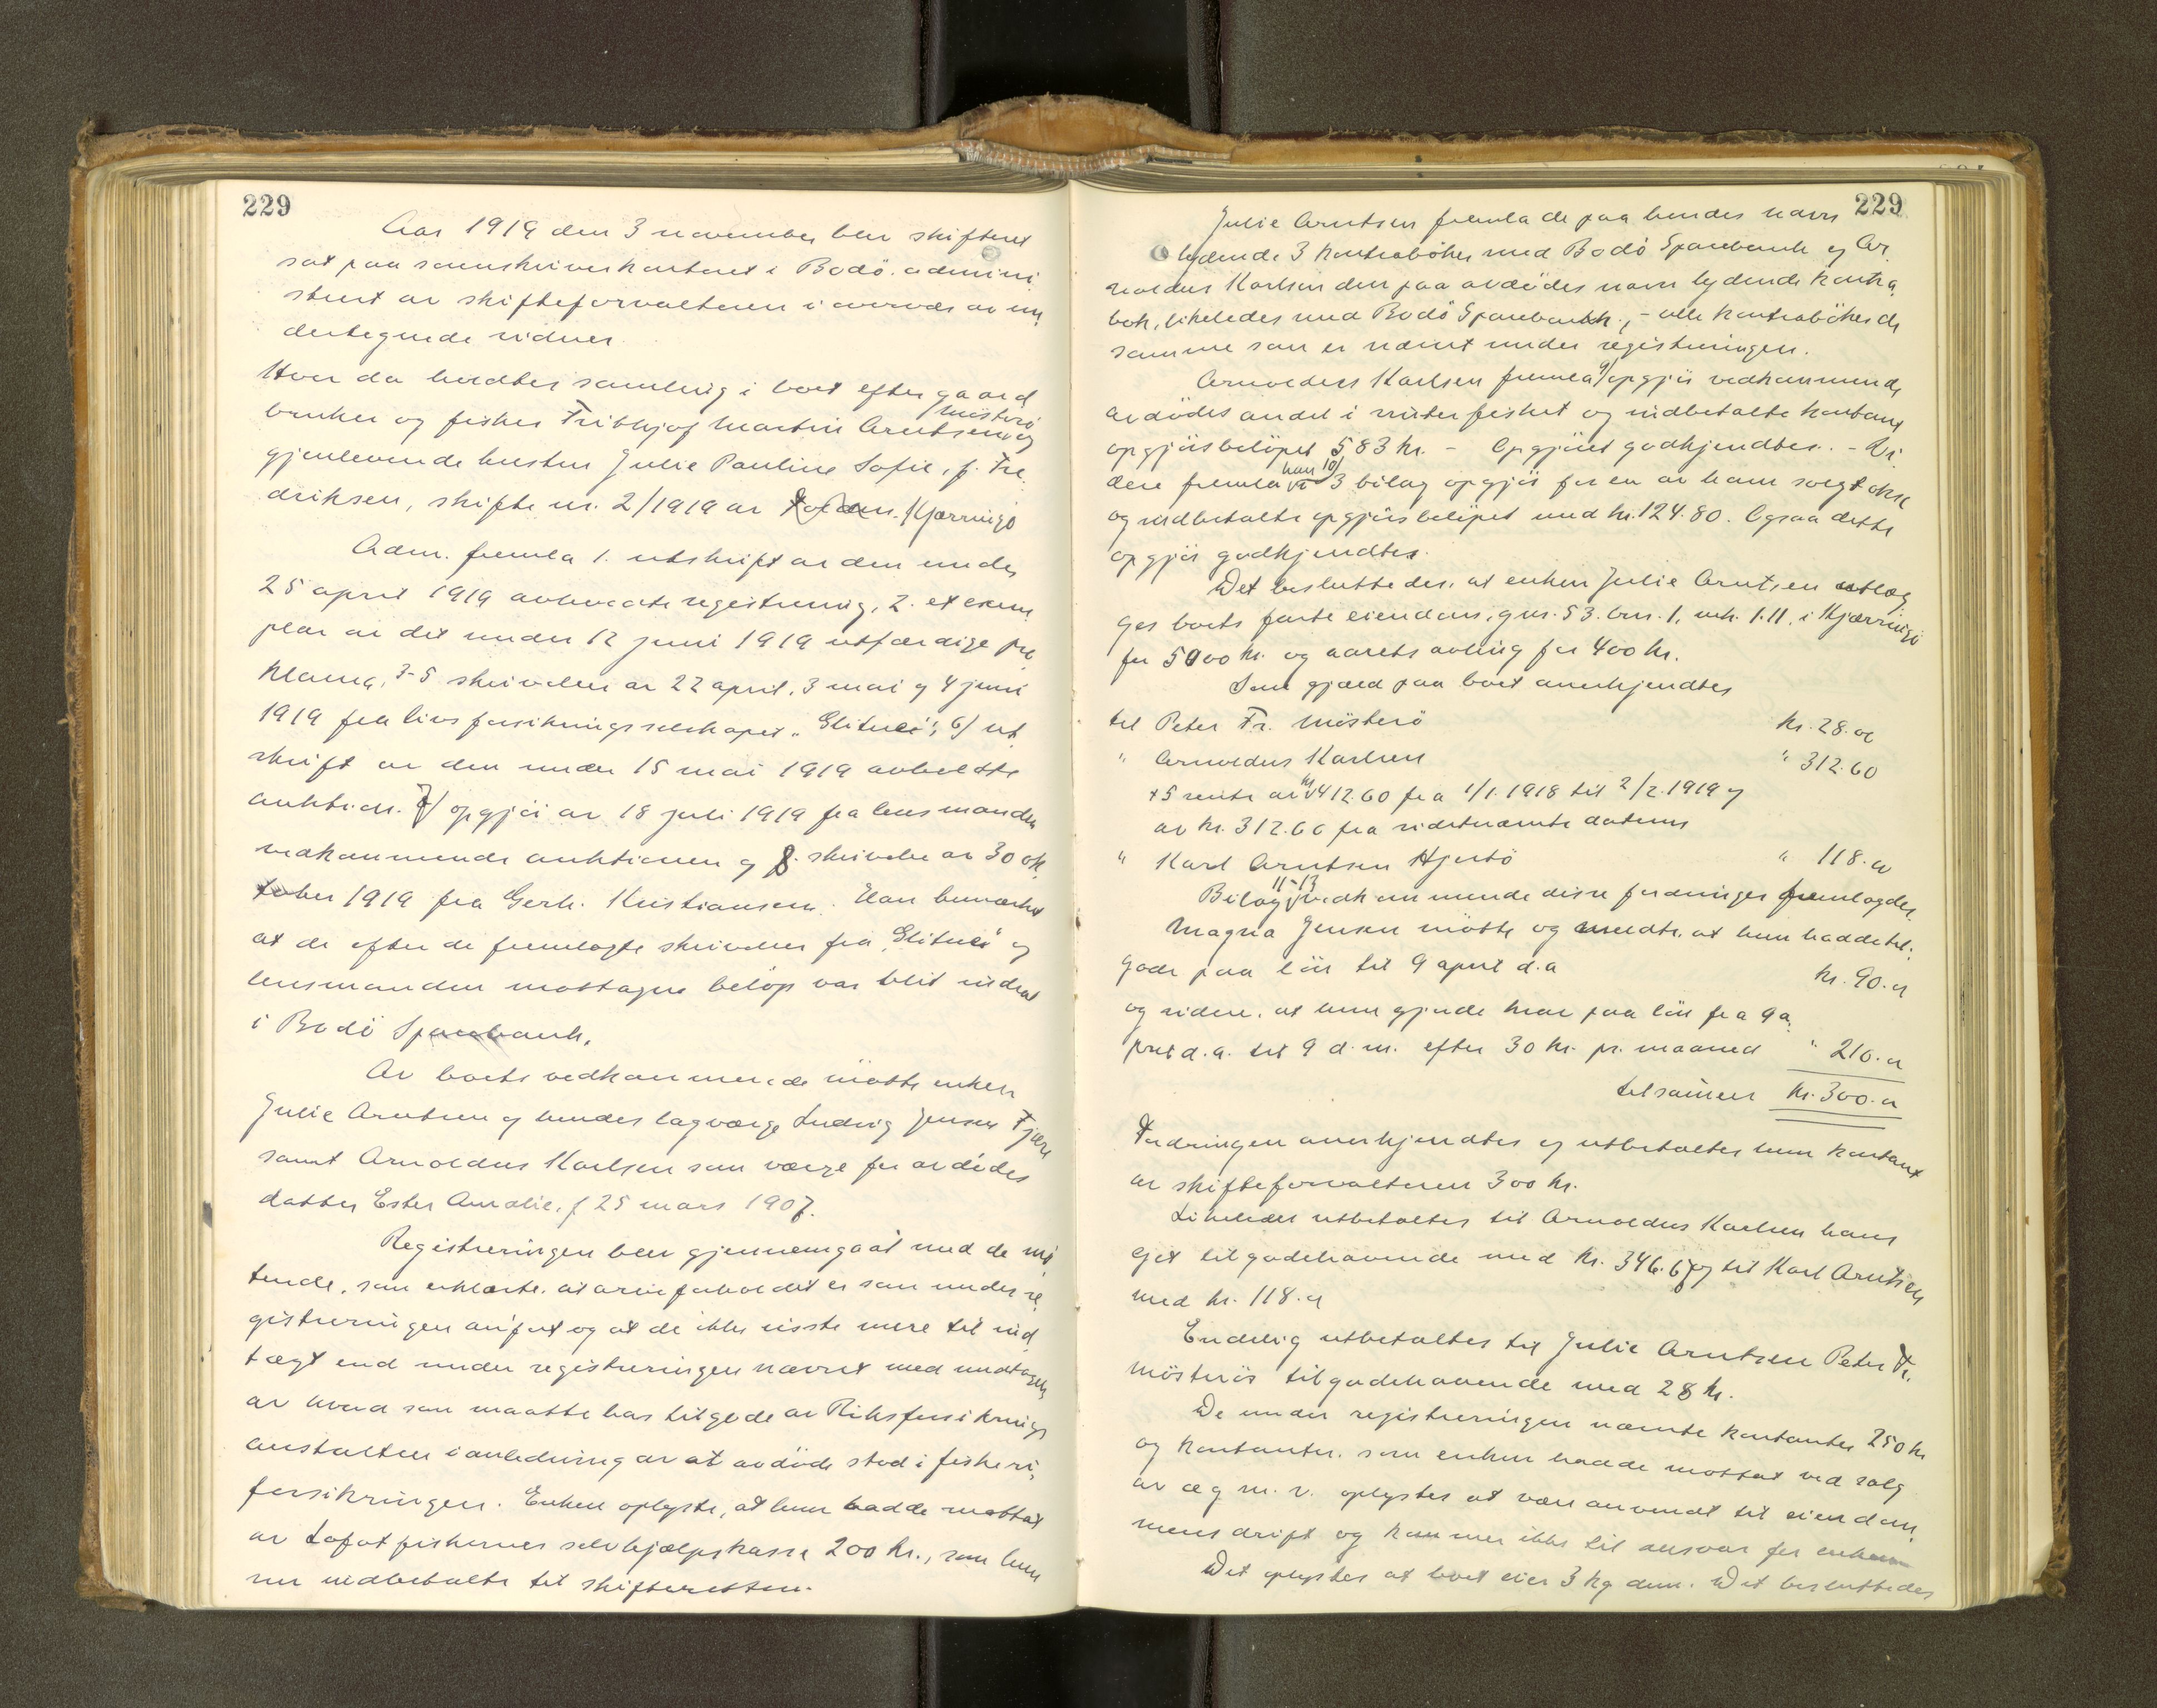 229
Aar 1919 den 3 november blev skifteret
sat paa sorenskriverkontoret i Bodö. admini
strert av skifteforvalteren i overvær av un
dertegnede vidner.
Hvor da holdtes samling i boet efter gaard
bruker og fisker Frithjof Martin Arntsen Misterö og
gjenlevende hustru Julie Pauline Sofie, f. Fre
driksen, skifte nr. 2/1919 av Kjerringö
Adm. fremla 1. utskrift av den under
25 april 1919 avholdte registrering, 2. et exem
plar av det under 12 juni 1919 utfærdige pro
klama, 3-5 skrivelser av 22 april, 3 mai og 4 juni
1919 fra livsforsikringsselskapet "Glitne", 6/ ut
skrift av den under 15 mai 1919 avholdte
auktion. 7/ opgjör av 18 juli 1919 fra lensmanden
vedkommende auktionen og 8. skrivelse av 30 ok
tober 1919 fra Gerh. Kristiansen. Han bemærket
at de efter de fremlagte skrivelser fra "Glitne" og
lensmanden mottagne belöp var blit indsat
i Bodö Sparebank.
Av boets vedkommende mötte enken
Julie Arntsen og hendes lagværge Ludvig Jensen Fjære
samt Arnoldus Karlsen som værge for avdödes
datter Ester Amalie, f 25 mars 1907.
Registreringen blev gjennemgaat med de mö
tende, som erklærte, at arveforholdet er som under re
gistreringen anført og at de ikke visste mere til ind
tægt end under registreringen nævnt med undtagelse
av hvad som maatte has tilgode av Riksforsikrings
anstalten i anledning av at avdöde stod i fiskeri
forsikringen. Enken oplyste, at hun hadde mottat
av Lofotfiskernes selvhjælpskasse 200 kr., som hun
nu indbetalte til skifteretten.
229
Julie Arntsen fremla de paa hendes navn
lydende 3 kontraböker med Bodö Sparebank og Ar
noldus Karlsen den paa avdödes navn lydende kontra
bok, likeledes med Bodö Sparebank, - alle kontraböker de
samme som er nævnt under registreringen.
Arnoldus Karlsen fremla 9/ opgjör vedkommende
avdödes andel i vinterfisket og indbetalte kontant
opgjörsbelöpet 583 kr. - Opgjöret godkjendtes. - Vi
dere fremla han 10/ 3 bilag opgjör for en av ham solgt okse
og indbetalte opgjörsbelöpet med kr. 124.80. Ogsaa dette
opgjör godkjendtes.
Det besluttedes, at enken Julie Arntsen utlæg
ges boets faste eiendom, gnr. 53. bnr. 1, mk. 1.11, i Kjærringö
for 5000 kr. og aarets avling for 400 kr.
Som gjæld paa boet anerkjendtes
til Peter Fr. Misterö kr. 28.00
" Arnoldus Karlsen " 312.60
+ 5 rente av kr 412.60 fra 1/1. 1918 til 2/2. 1919 og
av kr. 312.60 fra sidstnævnte datum
" Karl Arntsen Hjertö " 118.00
Bilag 11-13 vedkommende disse fordringer fremlagdes.
Magna Jensen mötte og meldte, at hun hadde til
gode paa lön til 9 april d.a kr. 90.00
og videre, at hun gjorde krav paa lön fra 9 a
pril d.a. til 9 d.m. efter 30 kr. pr. maaned " 210.00
tilsammen kr. 300.00
Fordringen anerkjendtes og utbetaltes hun kontant
av skifteforvalteren 300 kr.
Likeledes utbetaltes til Arnoldus Karlsen hans
eget tilgodehavende med kr. 346.67 og til Karl Arntsen
med kr. 118.00
Endelig utbetaltes til Julie Arntsen Peter Fr.
Misterös tilgodehavende med 28 kr.
De under registreringen nævnte kontanter 250 kr
og kontanter, som enken hadde mottat ved salg
av æg m. v. oplystes at være anvendt til eiendom
mens drift og kommer ikke til ansvar for enken
Det oplystes at boet eier 3 kg dun. Det besluttedes